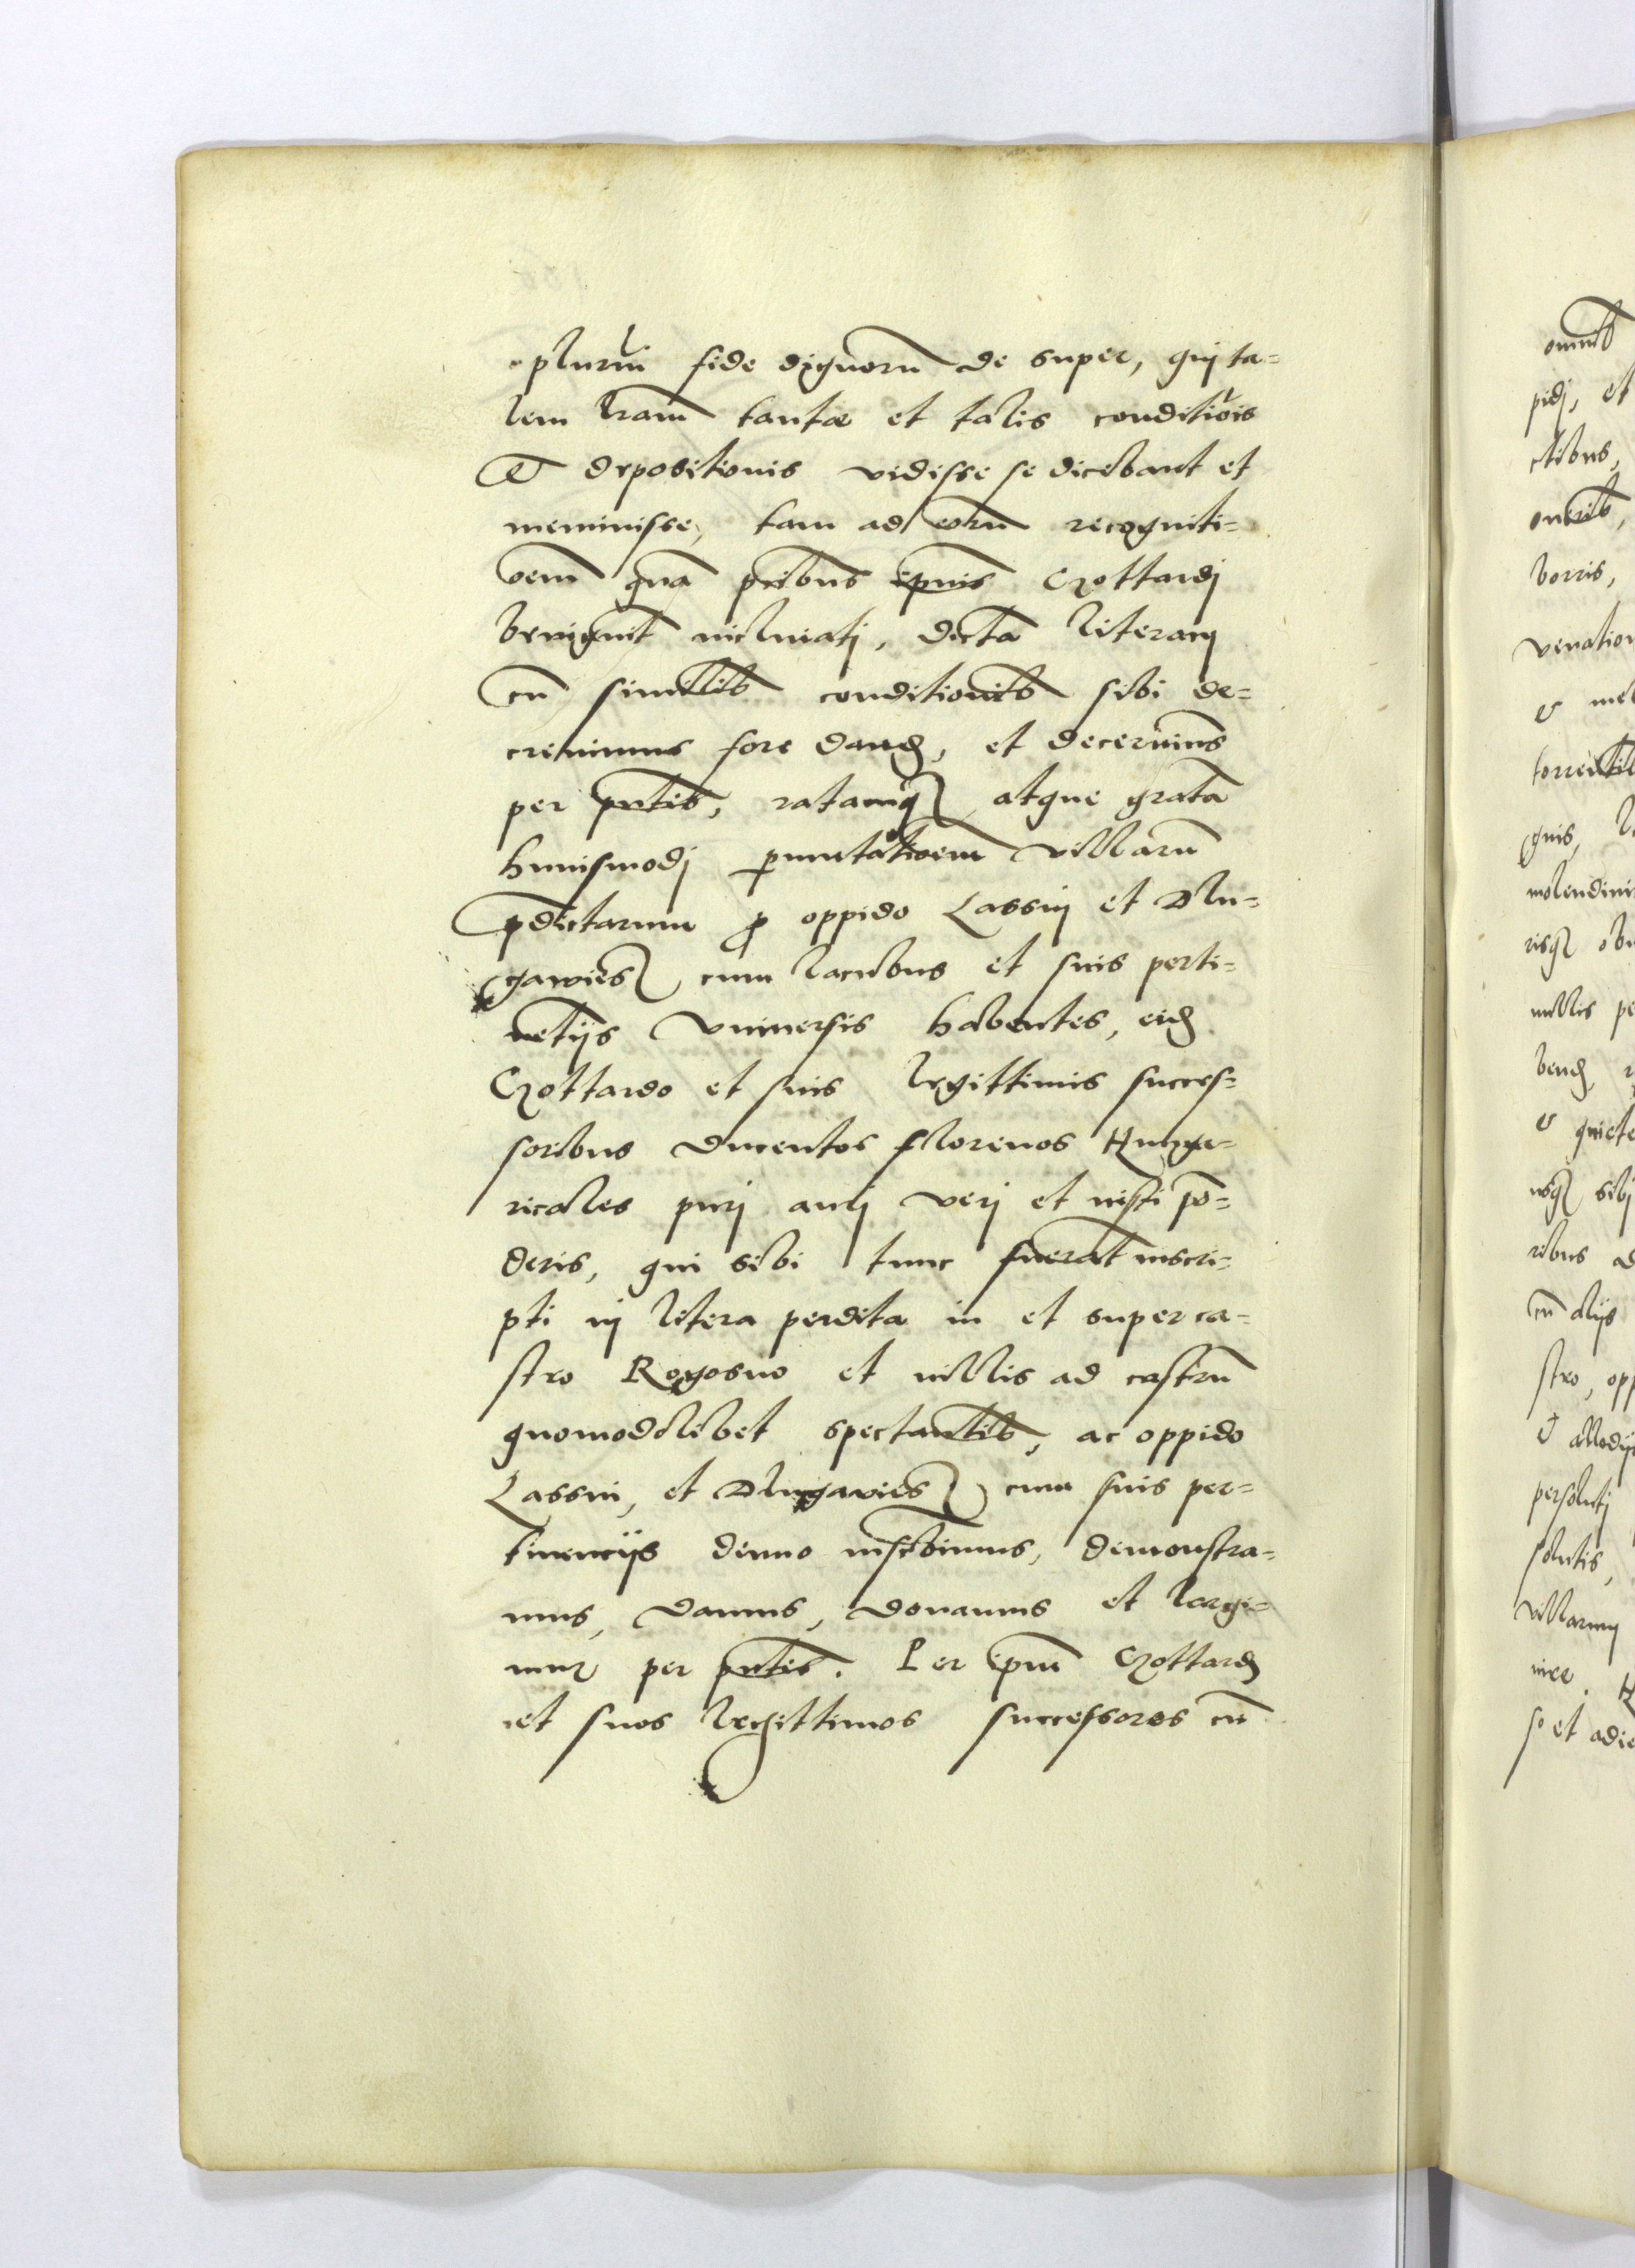 plurium fide dignorum de super, qui ta=
lem lram tantæ et talis conditiois
Et depositionis vidisse se dicebant et
meminisse, tam ad eoru recogniti=
oem qua pcibus ipius Czottardj
benignit inclinatj, dicta literam
cu similib conditionib sibi de=
creuimus fore dand, et decernims
per pntes, ratamq atque grata
huiusmodj pmutatioem villaru
pdictarum p oppido Lassin et Dlu=
gawies cum lacubus et suis perti=
netijs vniuersis habentes, eid
Czottardo et suis legittimis succes=
soribus ducentos florenos Hunga=
ricales purj aurj verj et iusti po=
deris, qui sibi tunc fuerat inscri=
pti in litera perdita in et super ca=
stro Rogosno et villis ad castru
quomodolibet spectantib, ac oppido
Lassin, et Dlugawies cum suis per=
tinencijs denuo inscbimus, demonstra=
mus, damus, donamus et largi=
mur per pntes. Per ipm Czottard
et suos legittimos successores cu
omnib
pidj, et
ctibus,
onerib,
borris,
venation
& mel
torrentib
gnis,
molendini
risq
nullis pe
bend,
& quiete
usq sibj
ribus
cu alijs
stro, opp
& allodijs
persolutj
solutis,
villarum
so et adie